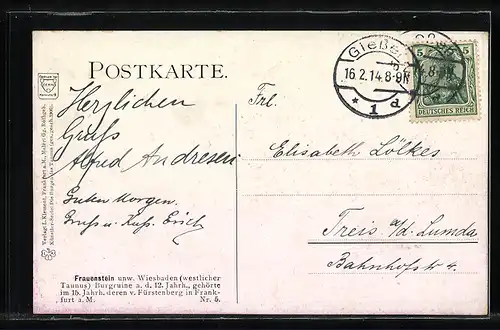 POSTKARTE.
Herzlichen
Gruß
Alfred Andresen
Guten Morgen.
Gruß u. Kuß. Erich
Frauenstein unw. Wiesbaden (westlicher
Taunus) Burgruine a. d. 12. Jahrh., gehörte
im 15. Jahrh. deren v. Fürstenberg in Frank-
furt a. M. Nr. 5.
Verlag: L. Klement, Frankfurt a. M.
Gießen
16.2.14.8-9N
* 1 d
5 5
DEUTSCHES REICH
Frl.
Elisabeth Lölkes
Treis a/d. Lumda
Bahnhofstr 4.